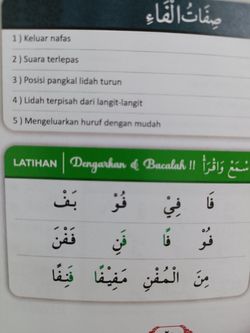 صِفَاتُ الْفَاءِ
1 ) Keluar nafas
2 ) Suara terlepas
3 ) Posisi pangkal lidah turun
4 ) Lidah terpisah dari langit-langit
5 ) Mengeluarkan huruf dengan mudah
LATIHAN | Dengarkan & Bacalah !! اِسْتَمِعْ وَاقْرَأْ
فَا فِيْ فُوْ بَفْ
فُوْ فًا فَنِ فَفْنَ
مِنَ الْمُفْنِ مَفِيْفًا فَنِفًا